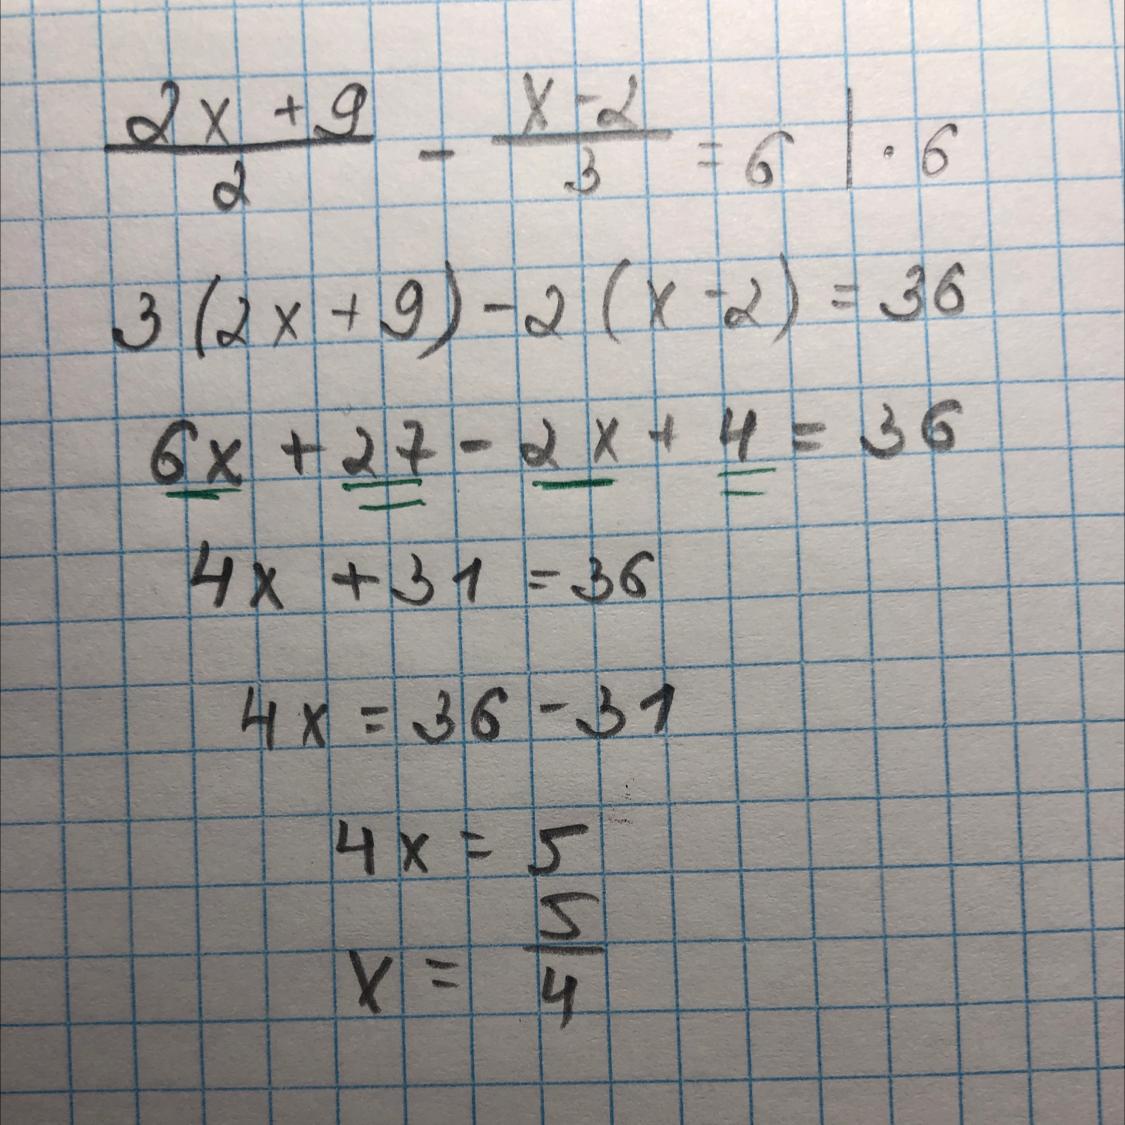 (2x + 9)/2 - (x - 2)/3 = 6 | · 6
3 (2x + 9) - 2 (x - 2) = 36
6x + 27 - 2x + 4 = 36
4x + 31 = 36
4x = 36 - 31
4x = 5
x = 5/4